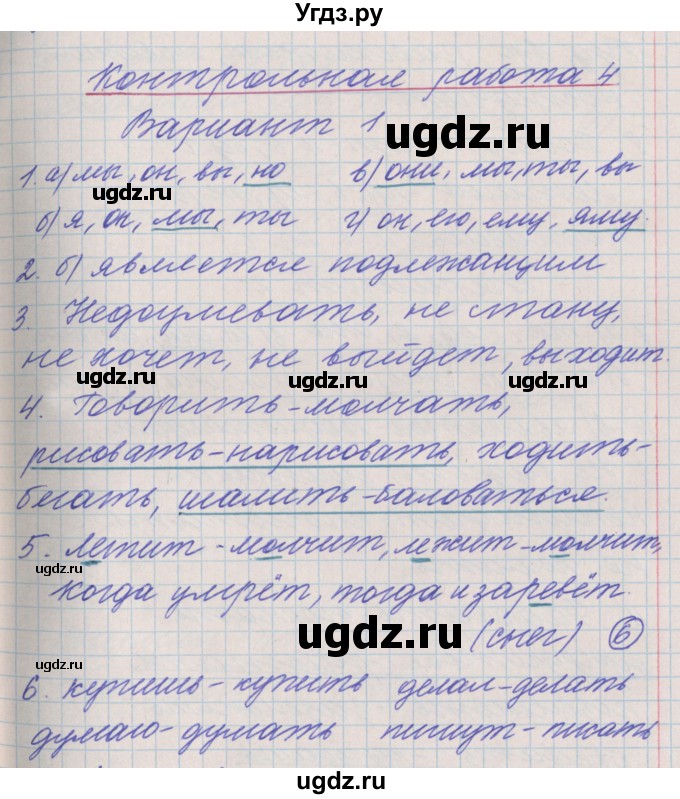 Угдз.ру
Контрольная работа 4
Вариант 1
ugdz.ru
1. а) мы, он, вы, но в) они, мы, ты, вы
ugdz.ru
б) я, он, мы, ты г) он, его, ему, яму.
2. б) является подлежащим
3. Недоумевать, не стану,
не хочет, не выйдет, выходит.
ugdz.ru ugdz.ru
4. Говорить-молчать,
рисовать-нарисовать, ходить-
бегать, шалить-баловаться.
5. Летит - молчит, лежит - молчит,
ugdz.ru
когда умрёт, тогда и заревёт.
ugdz.ru (снег) 6
6. купишь - купить делал - делать
ugdz.ru
думаю - думать пишут - писать
ugdz.ru